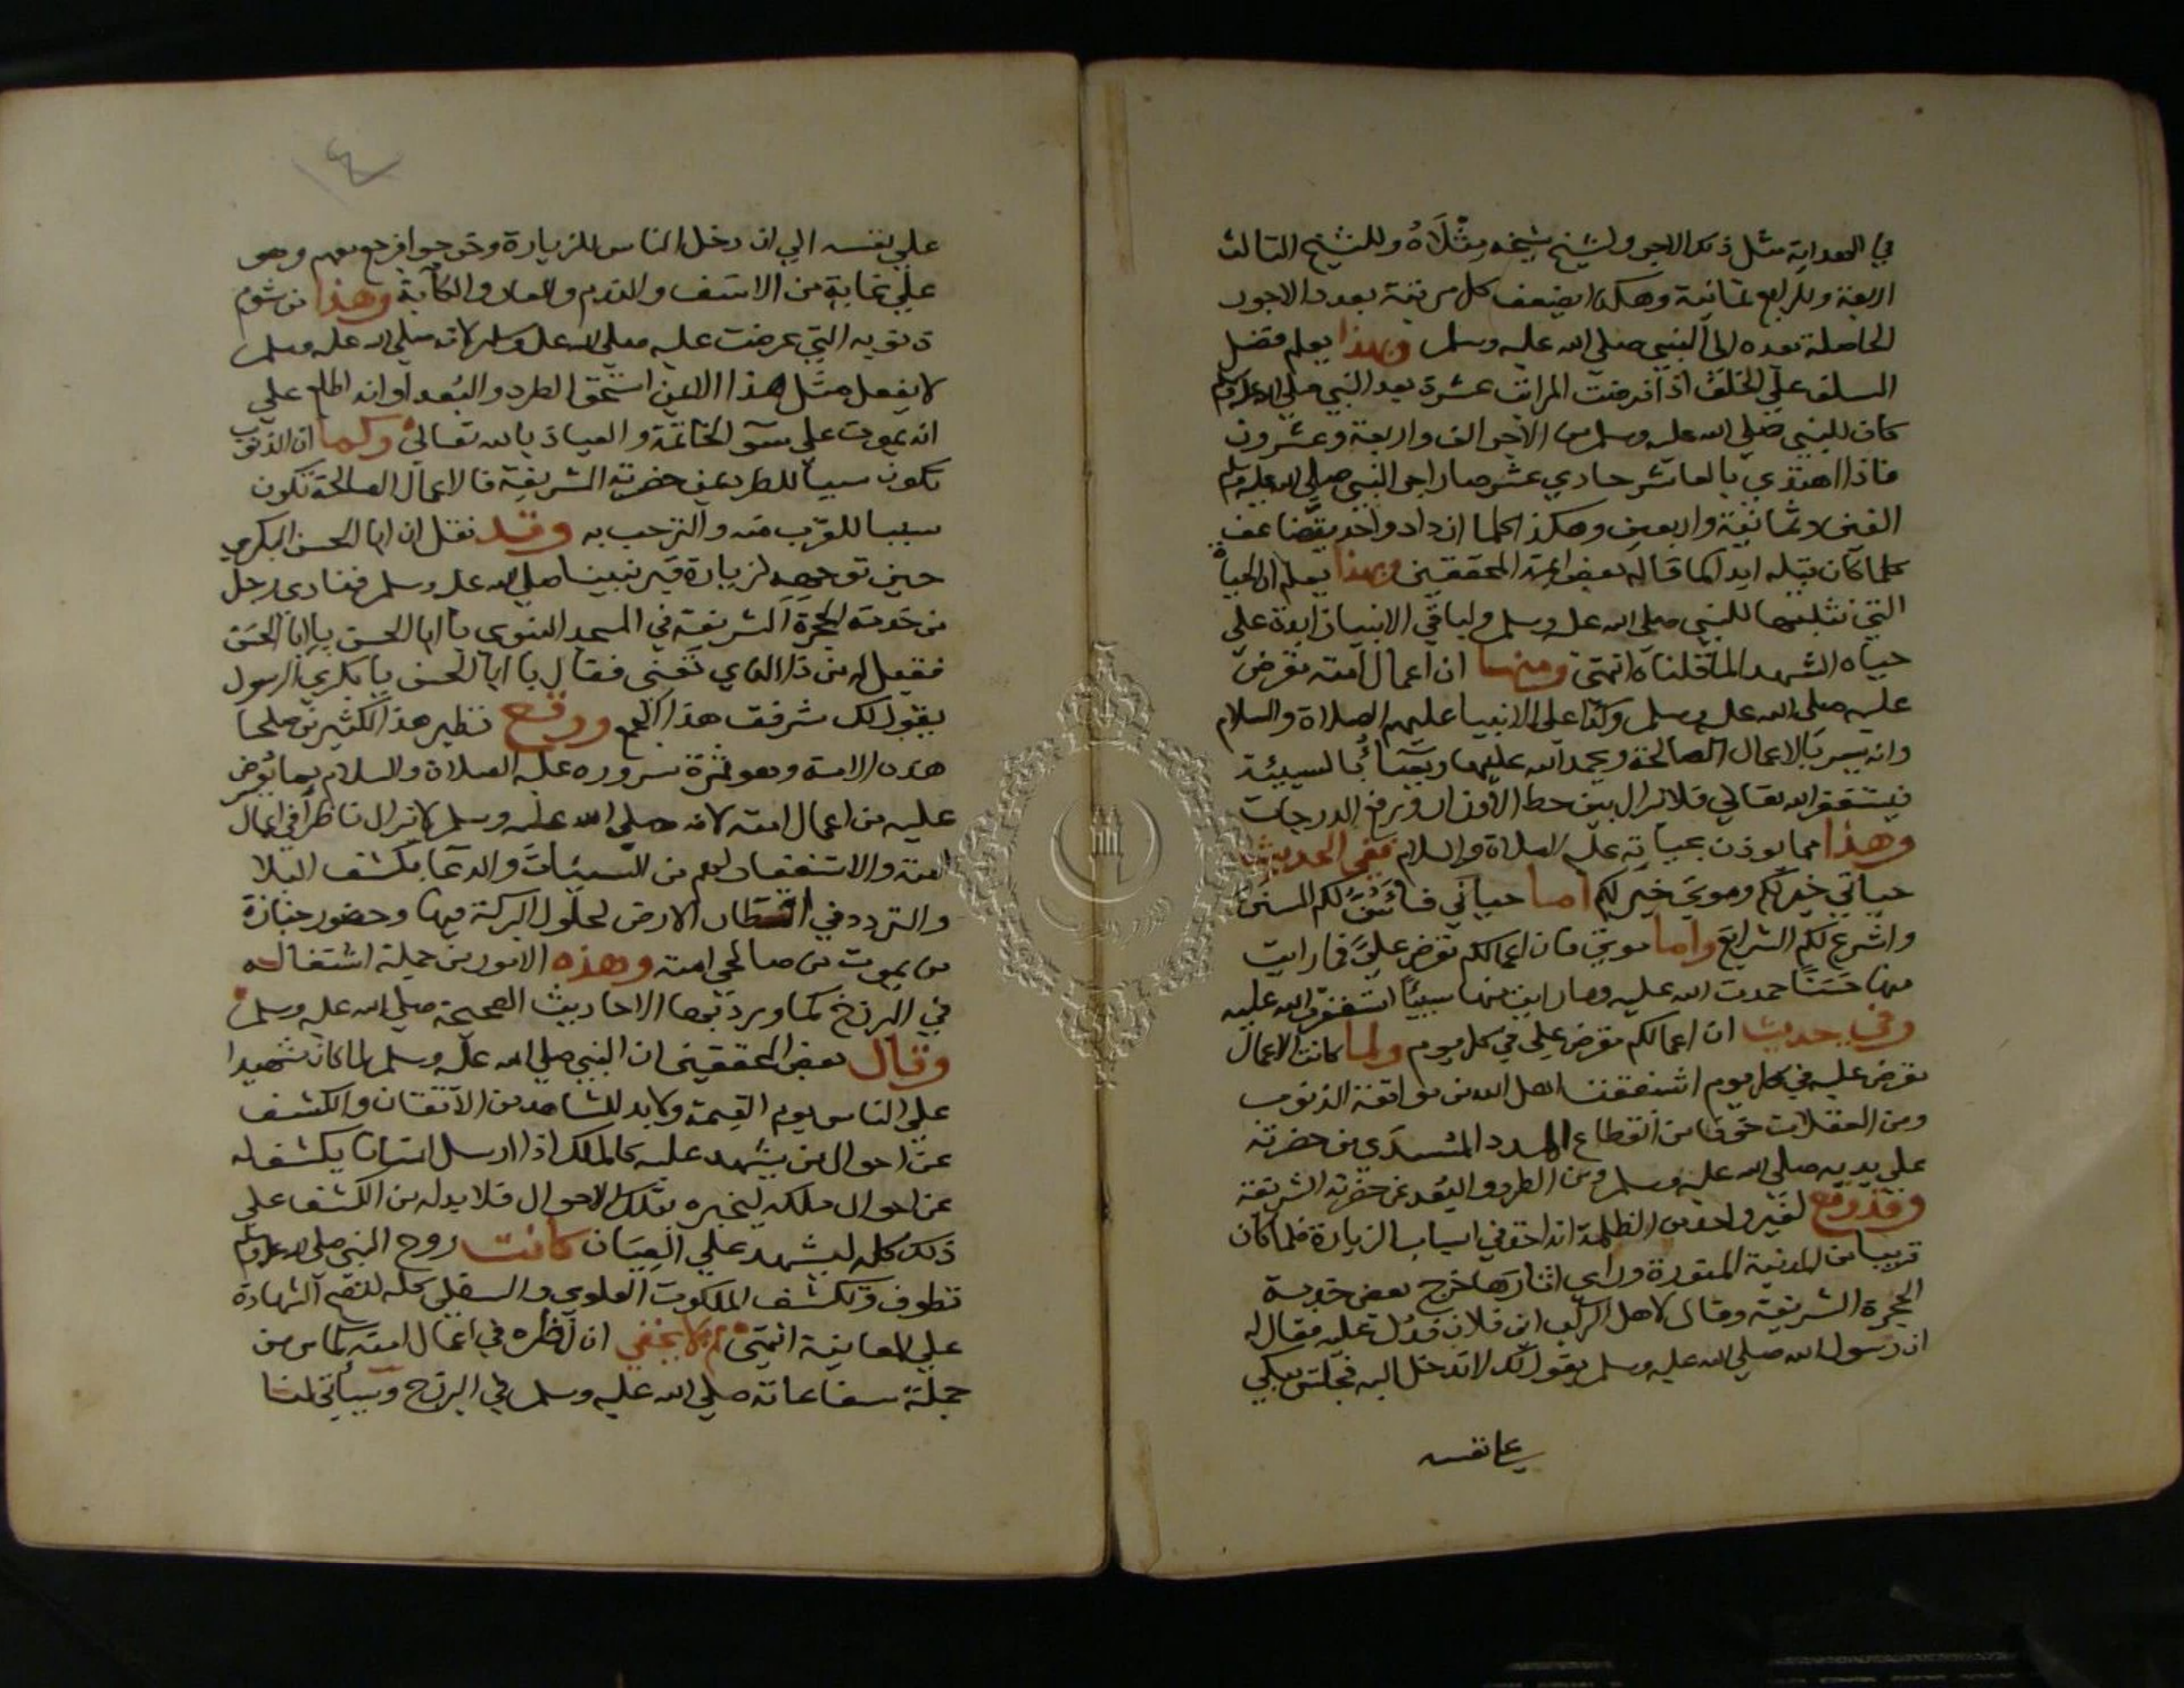 في الهداية مثل ذلك الاجر ولشيخ شيخه مثلاه وللشيخ الثالث
اربعة وللرابع ثمانية وهكذا يضعف كل مرتبة بعدد الاجور
الحاصلة بعده الى النبي صلى الله عليه وسلم وبهذا يعلم فضل
السلف علي الخلف اذا فرضت المراتب عشرة بعد النبي صلى الله عليه وسلم
كان للنبي صلى الله عليه وسلم من الاجر الف واربعة وعشرون
فاذا اهتدي بالعاشر حادي عشر صار اجر النبي صلى الله عليه وسلم
الفين وثمانية واربعين وهكذا كلما ازداد واحد يتضاعف
كلما كان قبله ابدا كما قاله بعض ائمة المحققين وبهذا يعلم ان الحياة
التي نثبتها للنبي صلى الله عليه وسلم ولباقي الانبيا زايدة علي
حياه الشهدا لما قلناه انتهى ومنها ان اعمال امته تعرض
عليه صلى الله عليه وسلم وكذا على الانبيا عليهم الصلاة والسلام
وانه يسر بالاعمال الصالحة ويحمد الله عليها ويساء بالسيئة
فيستغفر الله تعالي فلا يزال بين حط الاوزار ورفع الدرجات
وهذا مما يوذن بحياته عليه الصلاة والسلام ففي الحديث
حياتي خير لكم وموتي خير لكم اما حياتي فاسن لكم السنن
واشرع لكم الشرايع واما موتي فان اعمالكم تعرض علي فما رايت
منها حسنا حمدت الله عليه وما رايت منها سيئا استغفرت الله عليه
وفي حديث ان اعمالكم تعرض علي في كل يوم ولما كانت الاعمال
تعرض عليه في كل يوم اشفقت اهل الله من مواقعة الذنوب
ومن الغفلات خوفا من انقطاع المدد المستمدي من حضرته
علي يديه صلى الله عليه وسلم ومن الطرد والبعد عن حضرته الشريفة
وقد وقع لغير واحد من الظلمة انه اخذ في اسباب الزيارة فلما كان
قريبا من المدينة المنورة وراى اثارها خرج بعض خدمة
الحجرة الشريفة وقال لاهل الركب اين فلان فدل عليه فقال له
ان رسول الله صلى الله عليه وسلم يقول لك لا تدخل اليه فجلس يبكي
على نفسه
٤
علي نفسه الي ان دخل الناس للزيارة وخرجوا فرجع معهم وهو
علي غاية من الاسف والندم والعار والكآبة وهذا من شوم
ذنوبه التي عرضت عليه صلى الله عليه وسلم لانه صلى الله عليه وسلم
لا يفعل مثل هذا الا لمن استحق الطرد والبعد او انه اطلع علي
انه يموت علي سوء الخاتمة والعياذ بالله تعالى وكما ان الذنوب
تكون سببا للطرد عن حضرته الشريفة فالاعمال الصالحة تكون
سببا للقرب منه والترحب به وقد نقل ان ابا الحسن البكري
حين توجهه لزيارة قبر نبينا صلى الله عليه وسلم فنادى رجل
من خدمة الحجرة الشريفة في المسجد النبوي يا ابا الحسن يا ابا الحسن
فقيل له من ذا الذي تعني فقال يا ابا الحسن يا بكري الرسول
يقول لك شرفت هذا الجمع ووقع نظير هذا لكثير من صلحا
هذه الامة وهو ثمرة سروره عليه الصلاة والسلام بما يعرض
عليه من اعمال امته لانه صلى الله عليه وسلم لا يزال ناظرا في اعمال
امته والاستغفار لهم من السيئات والدعا بكشف البلا
والتردد في اقطار الارض لحلول البركة فيها وحضور جنازة
من يموت من صالحي امته وهذه الامور من جملة اشتغاله
في البرزخ كما ورد بها الاحاديث الصحيحة صلى الله عليه وسلم
وقال بعض المحققين ان النبي صلى الله عليه وسلم لما كان شهيدا
علي الناس يوم القيمة ولا بد للشاهد من الاتقان والكشف
عن احوال من يشهد عليه كالملك اذا ارسل انسانا يكشف له
عن احوال ملكه ليخبره بتلك الاحوال فلا بد له من الكشف علي
ذلك كله ليشهد علي العيان كانت روح النبي صلى الله عليه وسلم
تطوف وتكشف الملكوت العلوي والسفلي كله لتقع الشهادة
علي المعاينة انتهى ولا يخفي ان نظره في اعمال امته كما مر من
جملة شفاعاته صلى الله عليه وسلم في البرزخ وسيأتي لنا